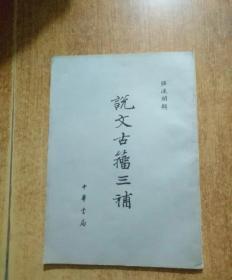 強運開輯
說文古籀三補
中華書局